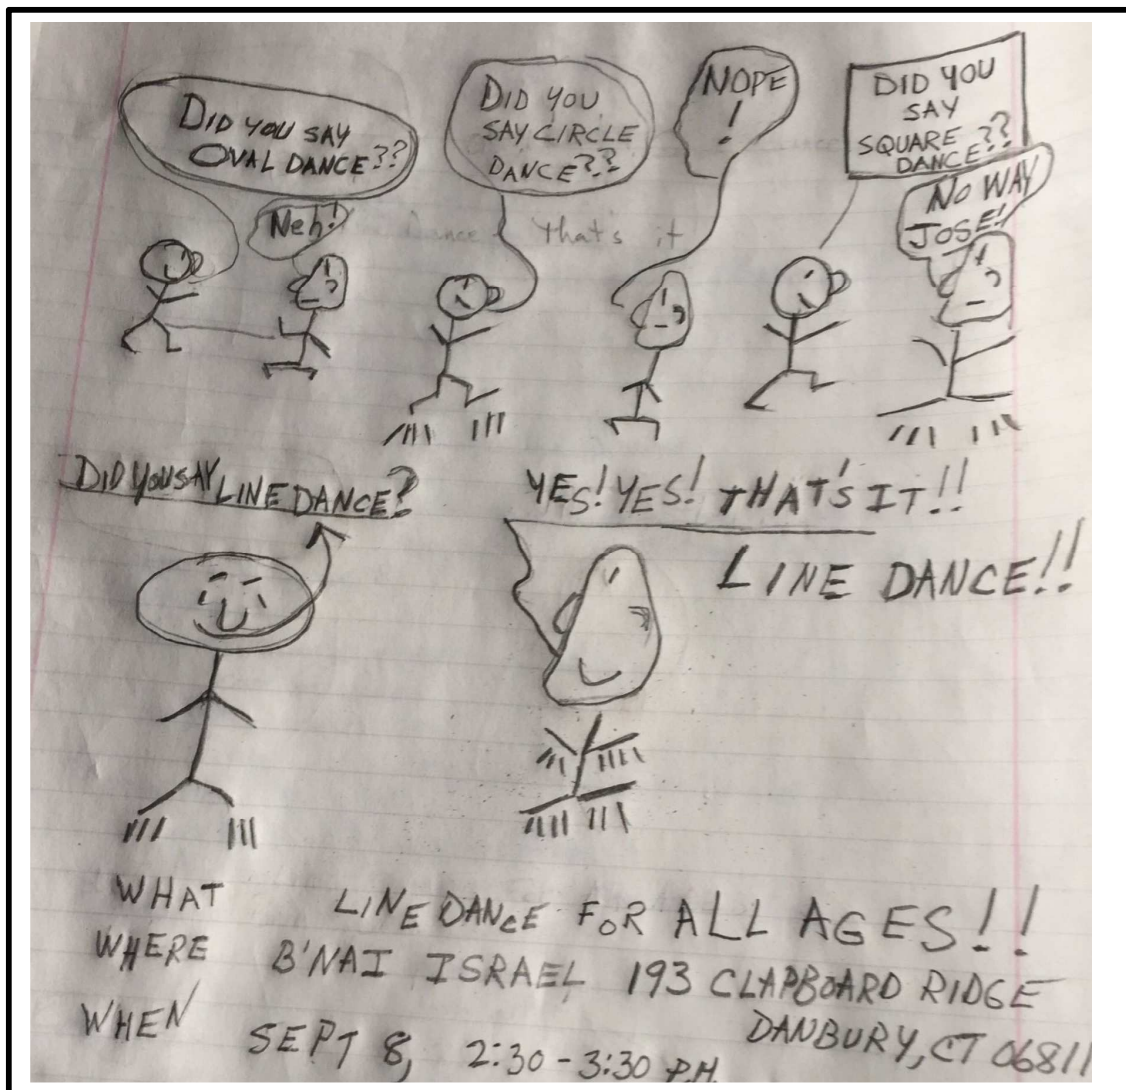 DID YOU SAY
OVAL DANCE??
Neh!
DID YOU
SAY CIRCLE
DANCE??
NOPE
!
DID YOU
SAY
SQUARE
DANCE??
NO WAY
JOSE!!
Dance that's it
DID YOU SAY LINE DANCE?
YES! YES! THAT'S IT!!
LINE DANCE!!
WHAT LINE DANCE FOR ALL AGES!!
WHERE B'NAI ISRAEL 193 CLAPBOARD RIDGE
DANBURY, CT 06811
WHEN SEPT 8, 2:30-3:30 P.M.